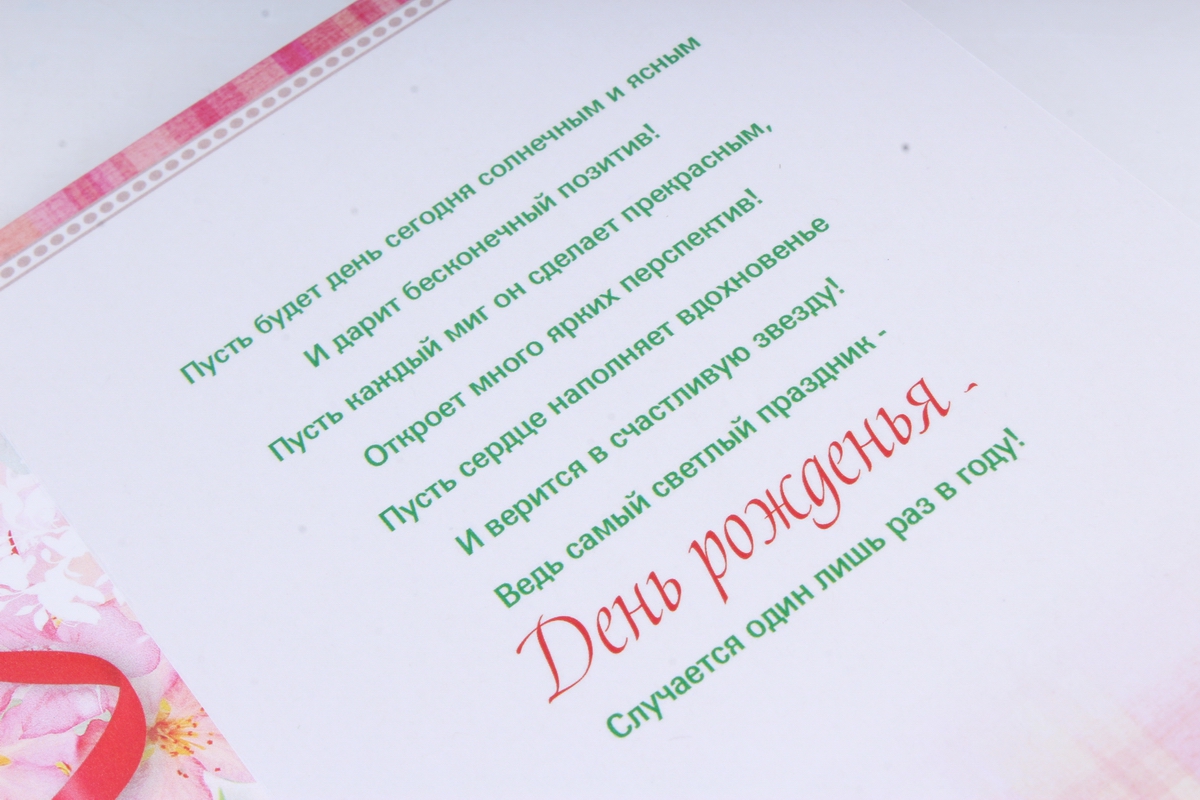 Пусть будет день сегодня солнечным и ясным
И дарит бесконечный позитив!
Пусть каждый миг он сделает прекрасным,
Откроет много ярких перспектив!
Пусть сердце наполняет вдохновенье
И верится в счастливую звезду!
Ведь самый светлый праздник -
День рожденья -
Случается один лишь раз в году!